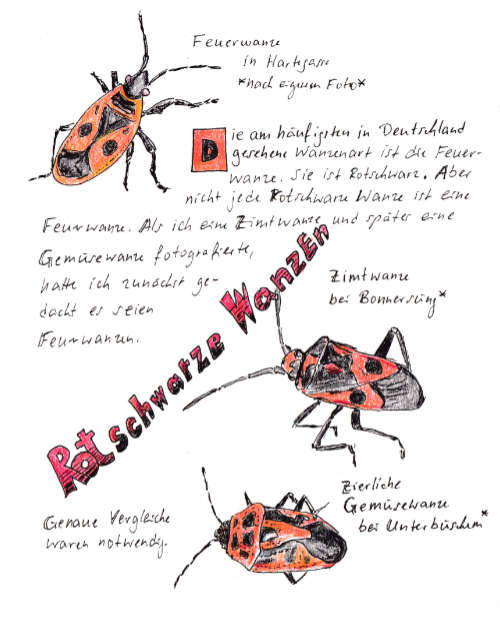 Feuerwanze
in Hartegasse
*nach eigenem Foto*
Die am häufigsten in Deutschland
gesehene Wanzenart ist die Feuer-
wanze. Sie ist Rotschwarz. Aber
nicht jede Rotschwarze Wanze ist eine
Feuerwanze. Als ich eine Zimtwanze und später eine
Gemüsewanze fotografierte,
hatte ich zunächst ge-
dacht es seien
Feuerwanzen.
Rotschwarze Wanzen
Zimtwanze
bei Bonnersüng*
Zierliche
Gemüsewanze
bei Unterbüschem*
Genaue Vergleiche
waren notwendig.